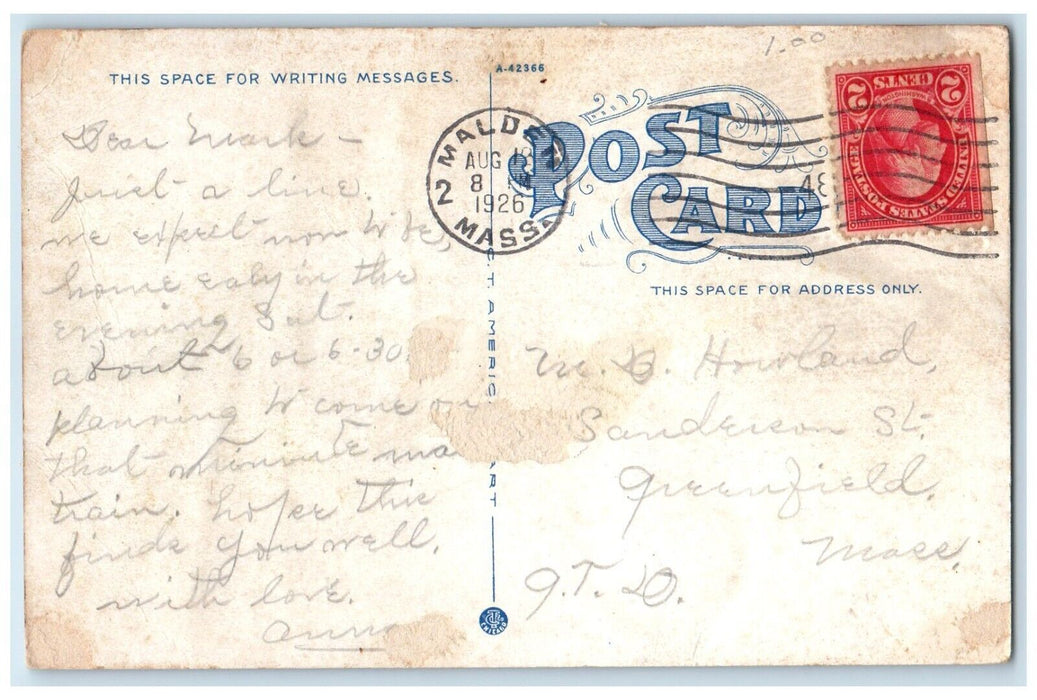 THIS SPACE FOR WRITING MESSAGES.
A-42366
1.00
POST CARD
MALDEN
AUG
8
1926
2 MASS.
CENTS
2 2
WASHINGTON
UNITED STATES POSTAGE
THIS SPACE FOR ADDRESS ONLY.
Dear Mark -
just a line.
we expect now to be
home ealy in the
evening Sat.
about 6 or 6-30.
planning to come on
that minute ma
train. hope this
finds you well.
with love.
Anna
C.T. AMERIC
ART
M. B. Howland,
Sanderson St.
Greenfield,
Mass.
CHICAGO